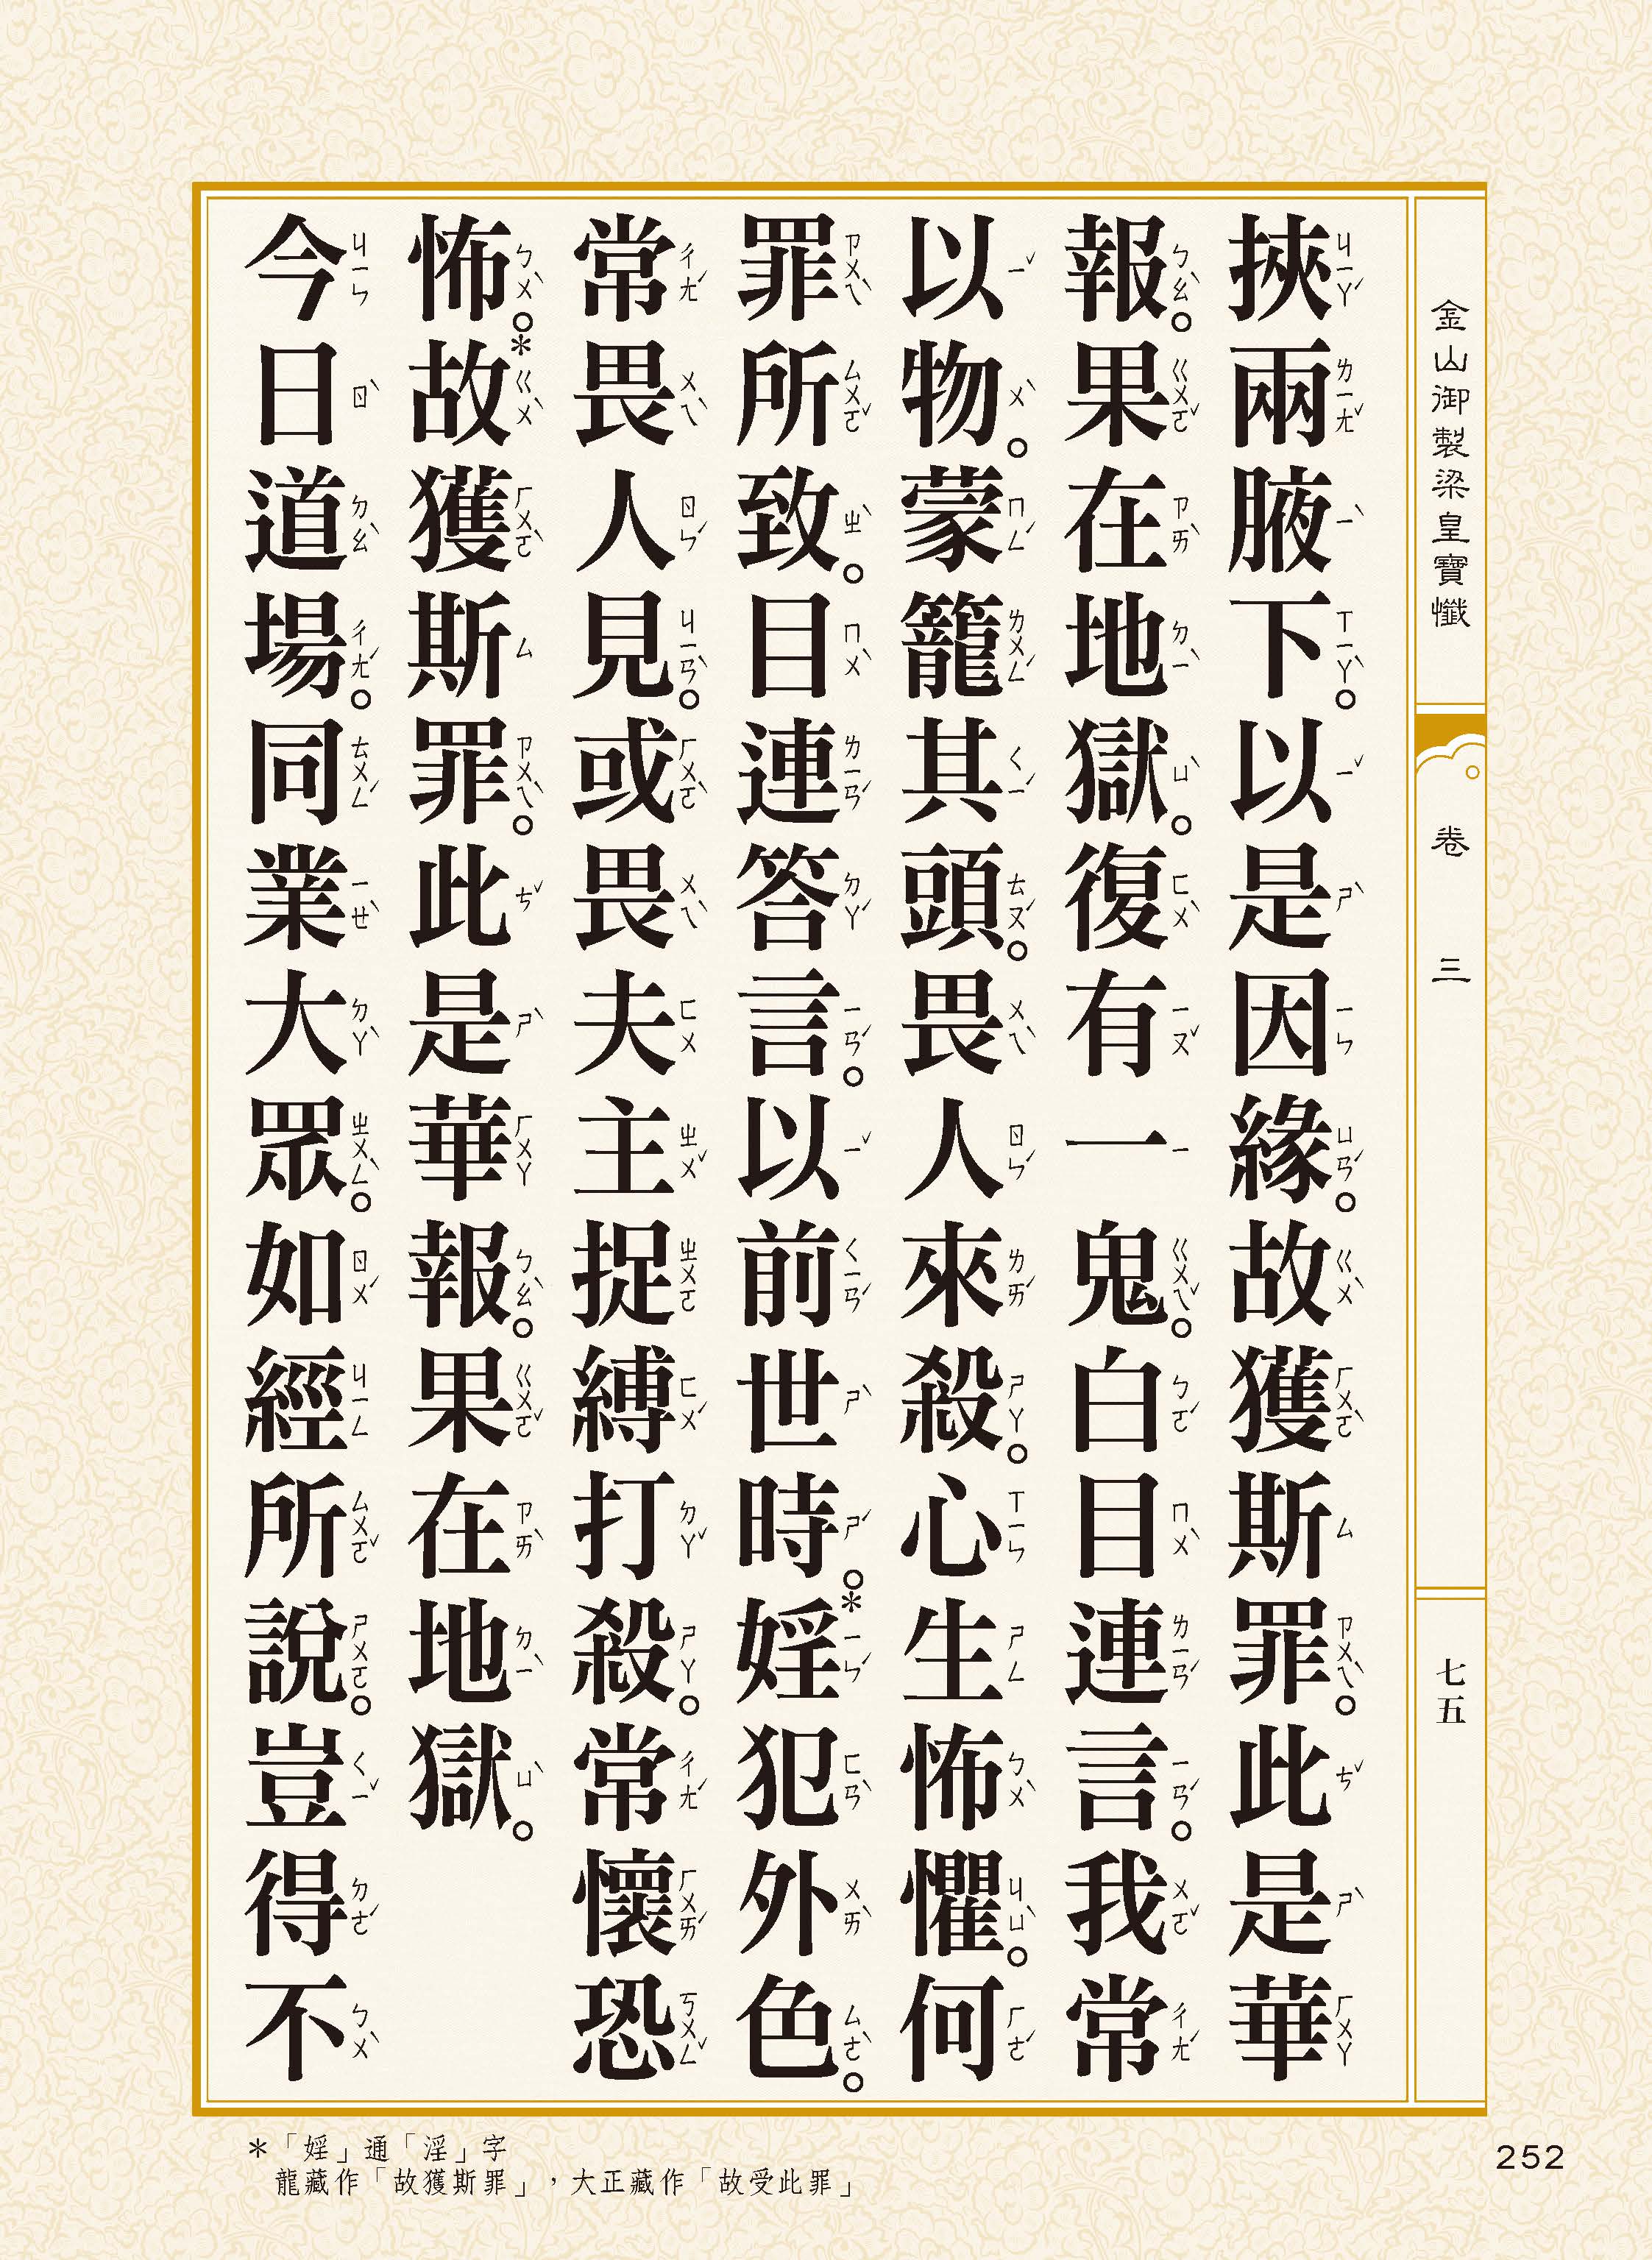 金山御製梁皇寶懺
卷三
七五
挾兩腋下。以是因緣。故獲斯罪。此是華
報。果在地獄。復有一鬼。白目連言。我常
以物。蒙籠其頭。畏人來殺。心生怖懼。何
罪所致。目連答言。以前世時。*婬犯外色。
常畏人見。或畏夫主捉縛打殺。常懷恐
怖。*故獲斯罪。此是華報。果在地獄。
今日道場。同業大眾。如經所說。豈得不
*「婬」通「淫」字
龍藏作「故獲斯罪」,大正藏作「故受此罪」
252